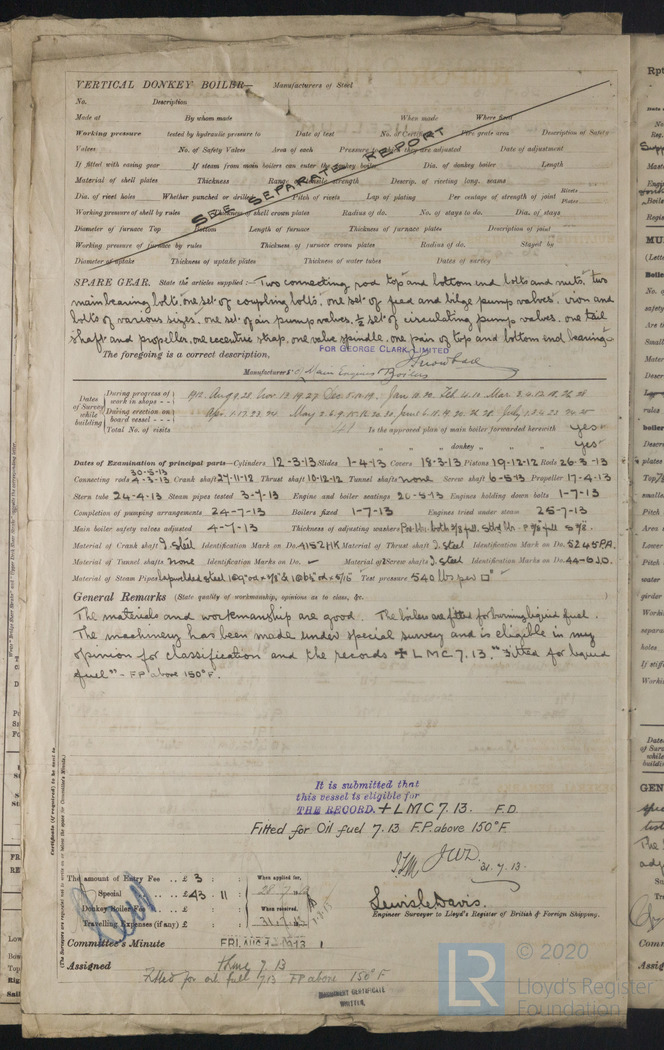 VERTICAL DONKEY BOILER— Manufacturers of Steel
No. Description
Made at By whom made When made Where fixed
Working pressure tested by hydraulic pressure to Date of test No. of Certificate Fire grate area Description of Safety
Valves No. of Safety Valves Area of each Pressure to which they are adjusted Date of adjustment
If fitted with easing gear If steam from main boilers can enter the donkey boiler Dia. of donkey boiler Length
Material of shell plates Thickness Range of tensile strength Descrip. of riveting long. seams
Dia. of rivet holes Whether punched or drilled Pitch of rivets Lap of plating Per centage of strength of joint Rivets Plates
Working pressure of shell by rules Thickness of shell crown plates Radius of do. No. of stays to do. Dia. of stays
Diameter of furnace Top Bottom Length of furnace Thickness of furnace plates Description of joint
Working pressure of furnace by rules Thickness of furnace crown plates Radius of do. Stayed by
Diameter of uptake Thickness of uptake plates Thickness of water tubes Dates of survey
SEE SEPARATE REPORT
SPARE GEAR. State the articles supplied:— Two connecting rod top and bottom end bolts and nuts, two
main bearing bolts, one set of coupling bolts, one set of feed and bilge pump valves, iron and
bolts of various sizes, one set of air pump valves, ½ set of circulating pump valves, one tail
shaft and propeller, one eccentric strap, one valve spindle, one pair of top and bottom end bearings
The foregoing is a correct description,
FOR GEORGE CLARK, LIMITED
Manufacturer of Main Engines & Boilers
Dates of Survey while building
During progress of work in shops - - 1912. Aug 9. 28 Nov 12. 19. 27 Dec
During erection on board vessel - - - Apr. 1. 13. 23. 24 May 2. 6. 9. 15. 16. 20. 30 June 6. 11. 19. 20. 26. 28 July 1. 3. 4. 23. 24. 25
Total No. of visits 41 Is the approved plan of main boiler forwarded herewith yes
" " donkey " " " yes
Dates of Examination of principal parts—Cylinders 12-3-13 Slides 1-4-13 Covers 18-3-13 Pistons 19-12-12 Rods 26-3-13
30-5-13
Connecting rods 4-3-13 Crank shaft 27-11-12 Thrust shaft 10-12-12 Tunnel shafts none Screw shaft 6-5-13 Propeller 17-4-13
Stern tube 24-4-13 Steam pipes tested 3-7-13 Engine and boiler seatings 26-5-13 Engines holding down bolts 1-7-13
Completion of pumping arrangements 24-7-13 Boilers fixed 1-7-13 Engines tried under steam 25-7-13
Main boiler safety valves adjusted 4-7-13 Thickness of adjusting washers
Material of Crank shaft I. Steel Identification Mark on Do. 4152HK Material of Thrust shaft I. Steel Identification Mark on Do. 5245PA.
Material of Tunnel shafts none Identification Marks on Do. — Material of Screw shafts I. Steel Identification Marks on Do. 44-6JD.
Material of Steam Pipes lapwelded steel Test pressure 540 lbs per □"
General Remarks (State quality of workmanship, opinions as to class, &c. )
The materials and workmanship are good. The boilers are fitted for burning liquid fuel.
The machinery has been made under special survey and is eligible in my
opinion for classification and the records ✠ L M C 7. 13. "Fitted for liquid
fuel" - F.P. above 150°F.
It is submitted that
this vessel is eligible for
THE RECORD. ✠ LMC 7. 13. F.D.
Fitted for Oil fuel 7. 13 F.P. above 150°F
JWD. 31. 7. 13.
Certificate (if required) to be sent to
(The Surveyors are requested not to write on or below the space for Committee's Minute.)
The amount of Entry Fee .. £ 3 : : When applied for,
Special .. £ 43 : 11 : 28.7.13
Donkey Boiler Fee .. £ : : When received,
Travelling Expenses (if any) £ : : 31.7.13
Lewis L. Davis.
Engineer Surveyor to Lloyd's Register of British & Foreign Shipping.
Committee's Minute FRI. AUG. 1 - 1913
Assigned + LMC 7. 13
Fitted for oil fuel 7.13 F.P. above 150°F
MACHINERY CERTIFICATE
WRITTEN.
LR © 2020
Lloyd's Register
Foundation